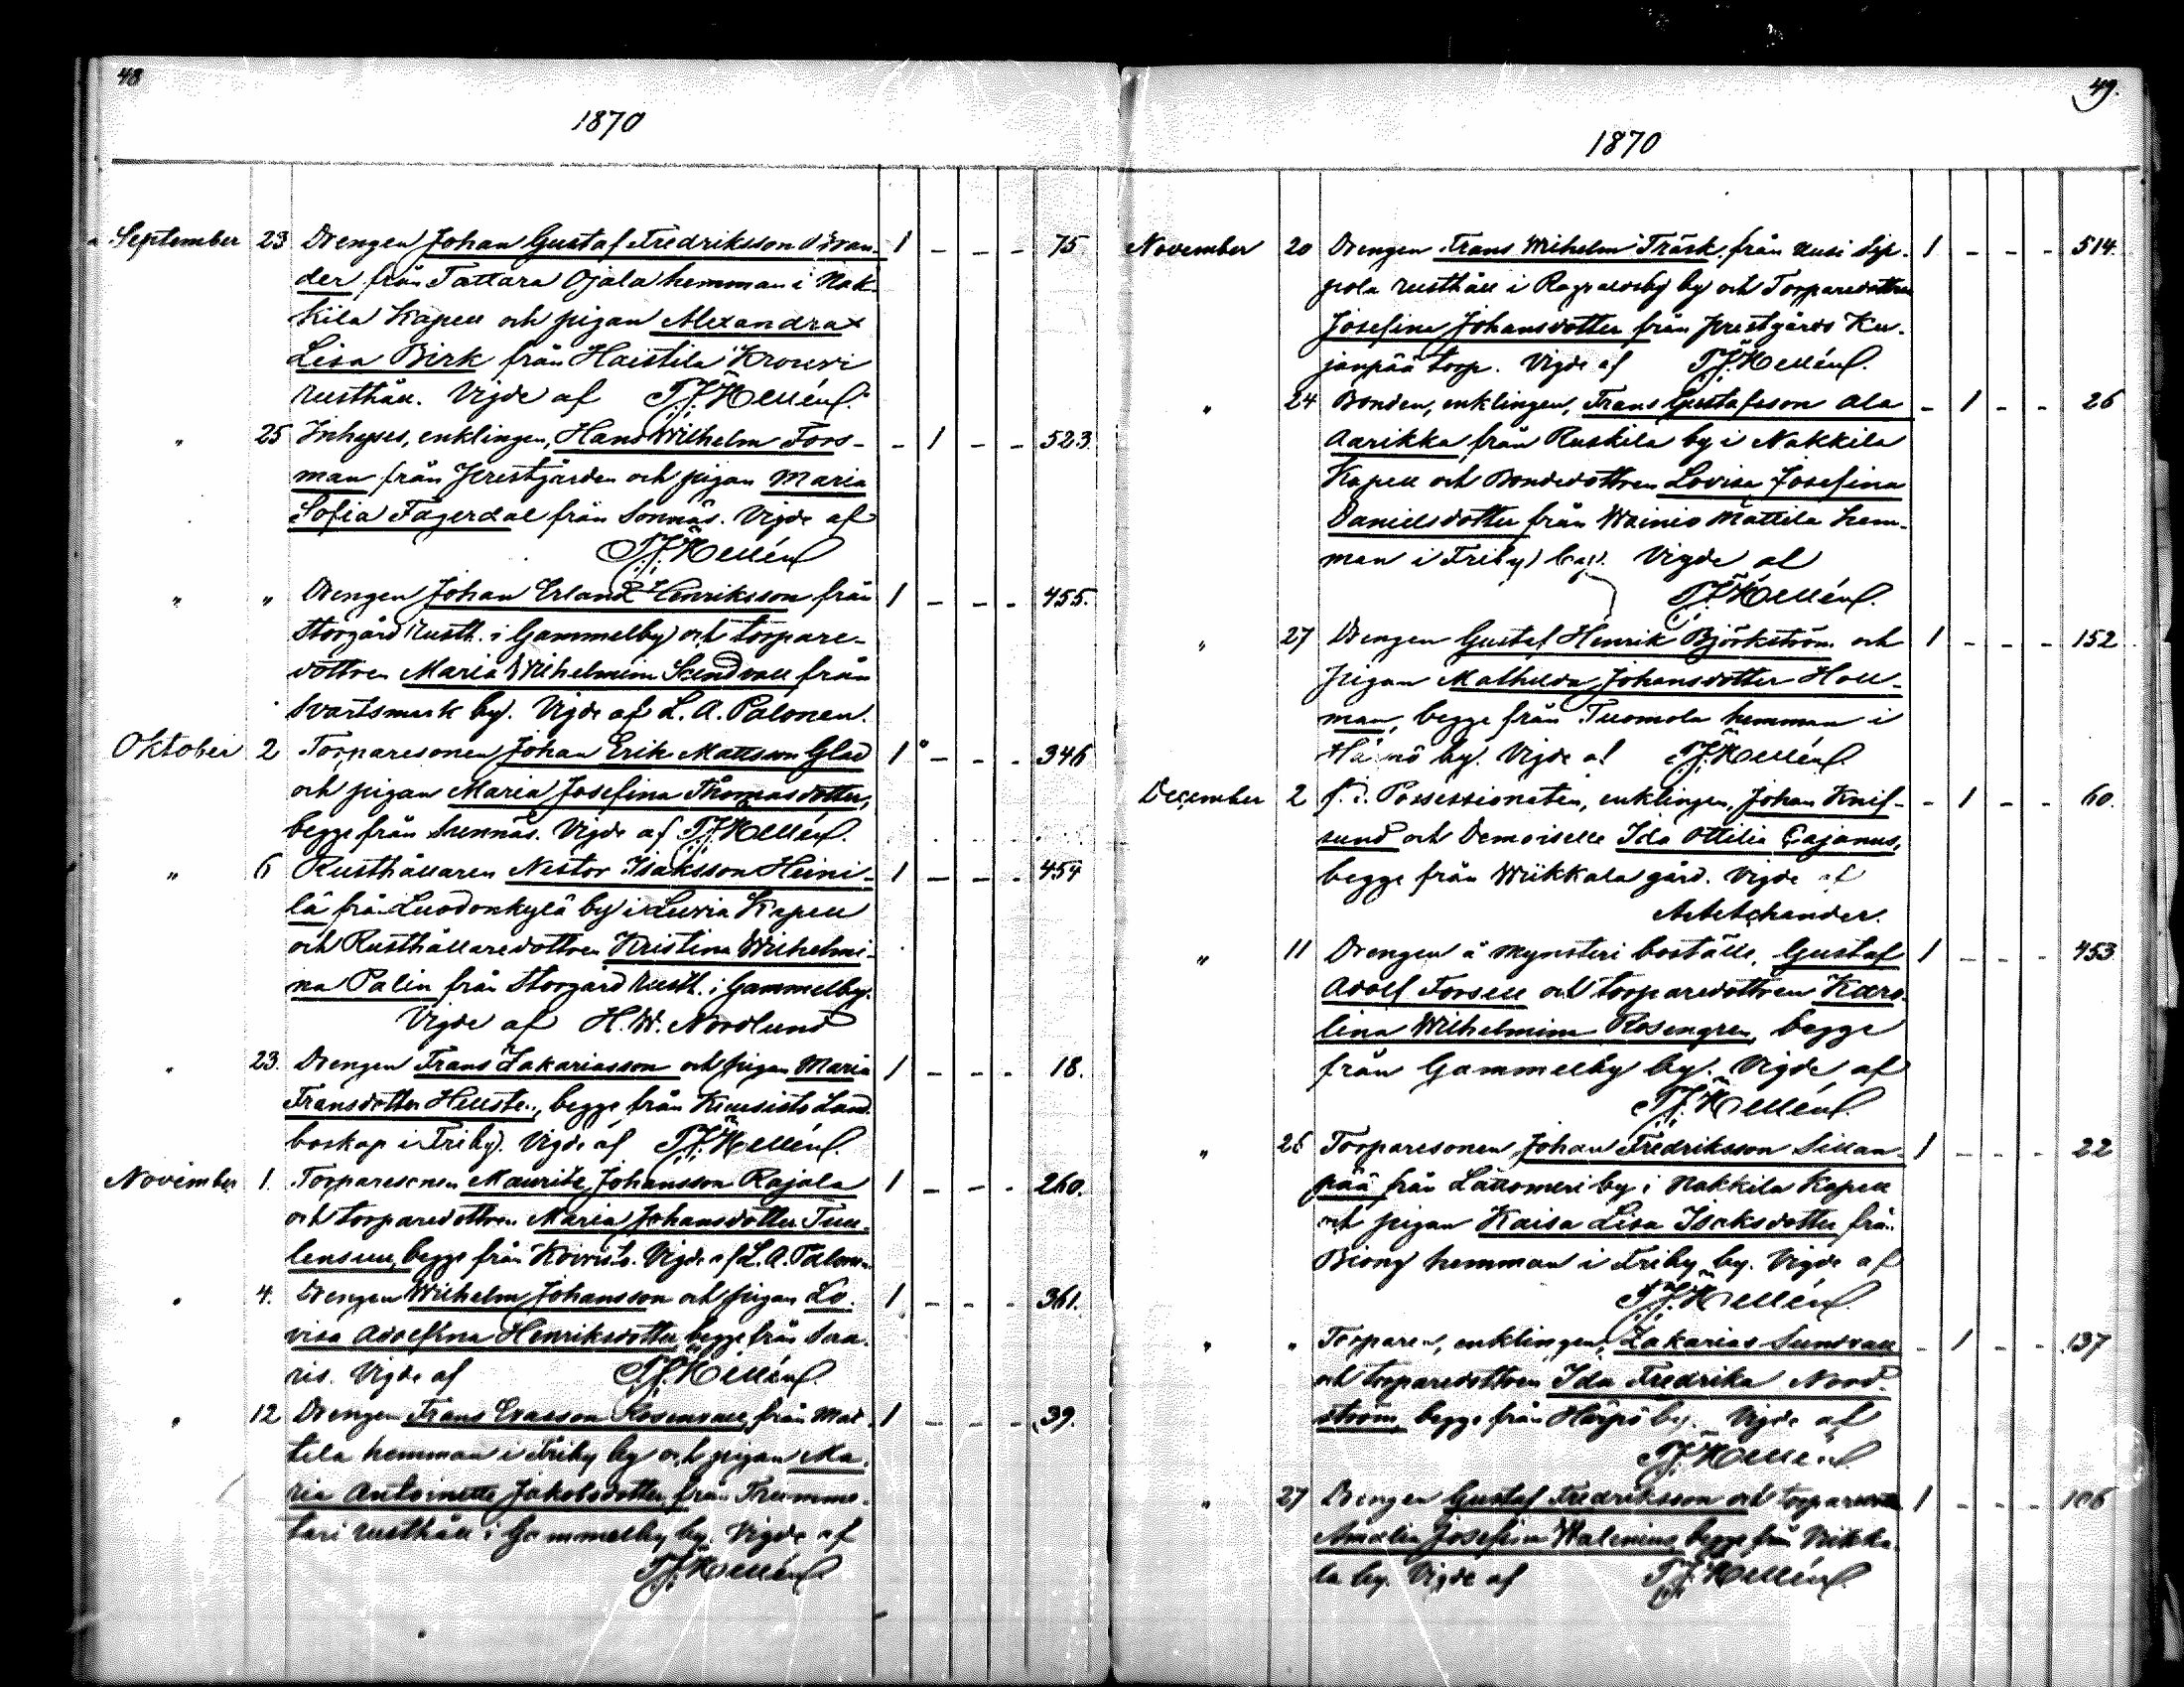 48
1870
September 23 Drengen Johan Gustaf Fredriksson Vi- 1 - - - 75
der från Tattara Ojala hemman i Nak-
kila Kapell och pigan Alexandra
Lisa Birk från Haistila Krouvi
rusthåll. Vigde af T.J. Hellén.
" 25 Inhyses, enklingen, Hans Wilhelm Fors- - 1 - - 523.
man från Prestgården och pigan Maria
Sofia Fagerdal från Sonnäs. Vigde af
T.J. Hellén
" " Drengen Johan Erland Henriksson från 1 - - - 455.
Storgård rusth. i Gammelby och torpare-
dottren Maria Wilhelmina Sundvall från
Svartsmark by. Vigde af L. A. Palonen.
Oktober 2 Torparesonen Johan Erik Mattsson Glad 1 - - - 346
och pigan Maria Josefina Thomasdotter,
begge från Sunnäs. Vigde af T.J. Hellén.
" 6 Rusthållaren Nestor Isaksson Heini- 1 - - - 454
lä från Luodonkylä by i Luvia Kapell
och Rusthållaredottren Kristina Wilhelmi-
na Palin från Storgård rusth. i Gammelby.
Vigde af H. W. Nordlund
" 23. Drengen Frans Zakariasson och pigan Maria 1 - - - 18.
Fransdotter Hellsten, begge från Kiusisto Land-
boskap i Friby. Vigde af T.J. Hellén.
November 1. Torparesonen Mauritz Johansson Rajala 1 - - - 260.
och torparedottren Maria Johansdotter Tuu-
lensuu, begge från Koivisto. Vigde af L. A. Palonen.
" 4. Drengen Wilhelm Johansson och pigan Lo- 1 - - - 361.
visa Adolfina Henriksdotter begge från Sva-
ris. Vigde af T.J. Hellén.
" 12 Drengen Frans Evasson Rosenvall, från Mat- 1 - - - 39.
tila hemman i Friby by och pigan Ma-
ria Antoinette Jakobsdotter från Trumme-
tari rusthåll i Gammelby by. Vigde af
T.J. Hellén
49.
1870
November 20 Drengen Frans Wilhelm Träsk, från Uusi Sip- 1 - - - 514.
pola rusthåll i Ragvaldsby by och Torparedottren
Josefina Johansdotter från Prestgårds Ku-
janpää torp. Vigde af T.J. Hellén.
" 24 Bonden, enklingen, Frans Gustafsson Ala - 1 - - 26
Aarikka från Ruskila by i Nakkila
Kapell och Bondedottren Lovisa Josefina
Danielsdotter från Wainio Mattila hem-
man i Friby by. Vigde af
T.J. Hellén.
" 27 Drengen Gustaf Henrik Björkström och 1 - - - 152
Pigan Mathilda Johansdotter Holl-
man, begge från Tuomola hemman i
by. Vigde af T.J. Hellén.
December 2 f.d. Possessionaten, enklingen, Johan Knif- - 1 - - 60.
sund och Demoiselle Ida Ottilia Cajanus,
begge från Wiikkala gård. Vigde af
" 11 Drengen å Mynsteri boställe, Gustaf 1 - - - 453
Adolf Forsell och torparedottren Karo-
lina Wilhelmina Rosengren, begge
från Gammelby by. Vigde af
T.J. Hellén.
" 26 Torparesonen Johan Fredriksson Sillan- 1 - - - 22
pää från Lattomeri by i Nakkila Kapell
och pigan Kaisa Lisa Isaksdotter från
Biong hemman i Friby by. Vigde af
T.J. Hellén.
" " Torparen, enklingen, Zakarias Sundvall - 1 - - 137
och torparedottren Ida Fredrika Nord-
ström, begge från Härpö by. Vigde af
T.J. Hellén.
" 27 Drengen Gustaf Fredriksson och torparedottren 1 - - - 106
Amalia Josefina Walenius begge från Wiikka-
la by. Vigde af T.J. Hellén.